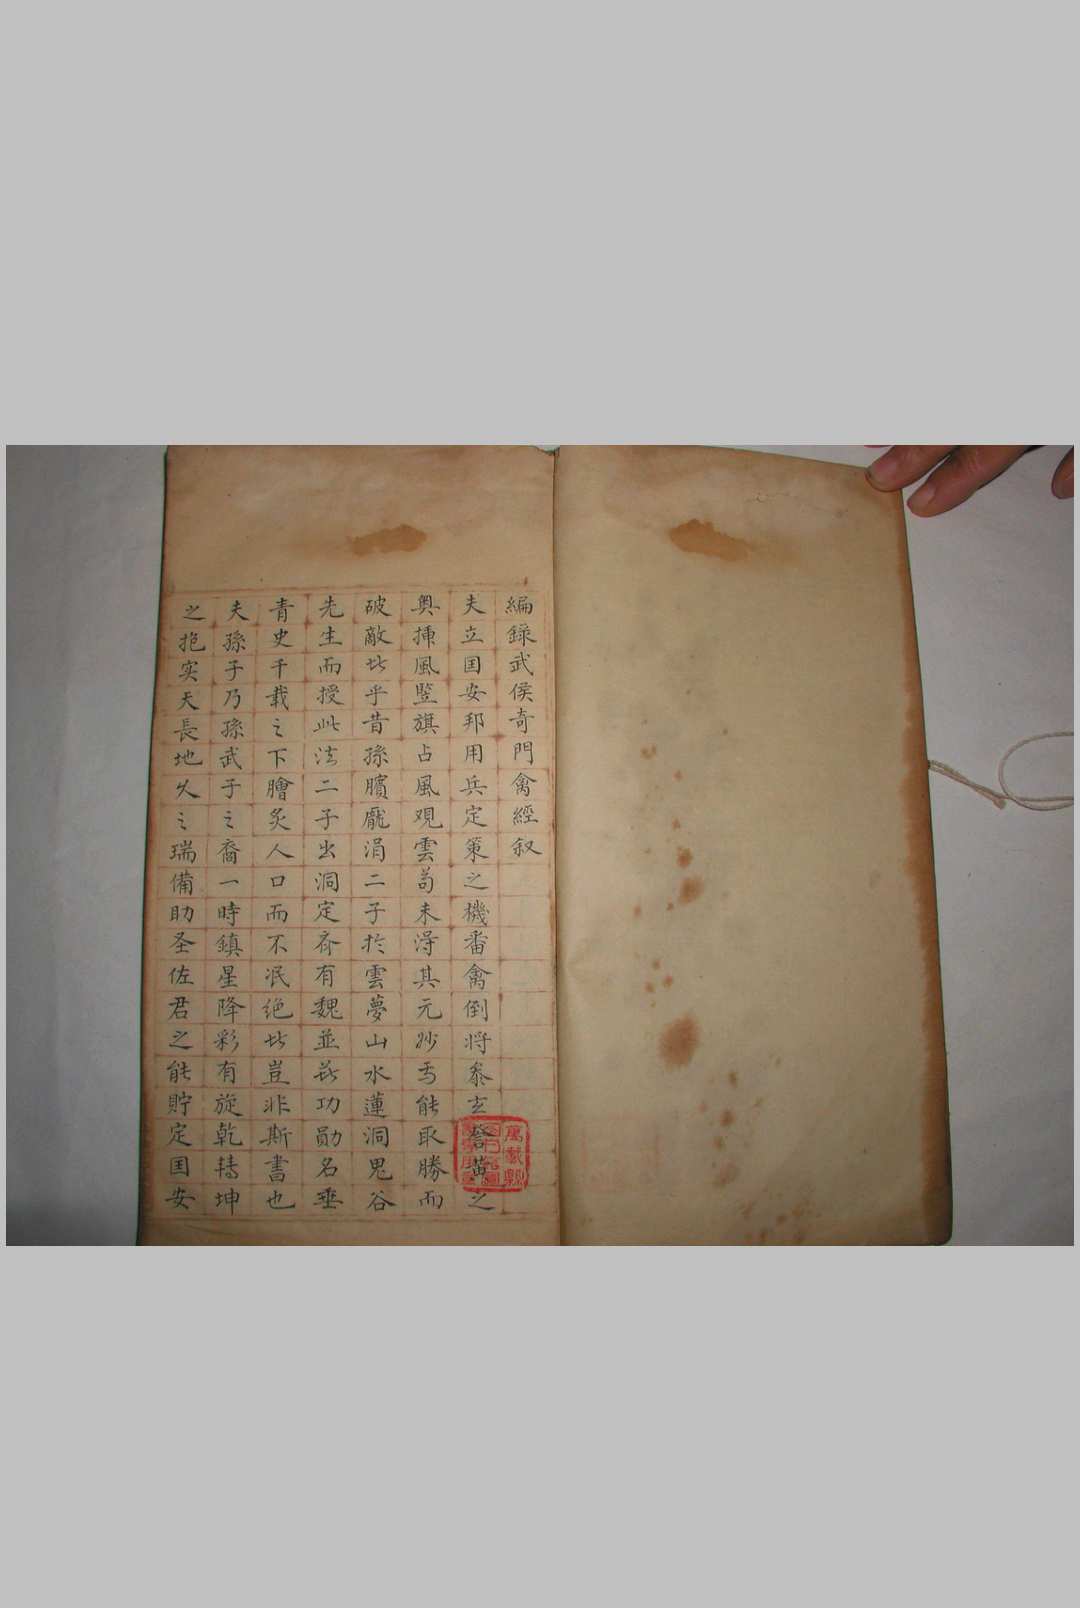 編錄武侯奇門禽經叙
夫立囯安邦用兵定策之機番禽倒將叅玄詹黃之
奧揷風竪旗占風观雲苟未淂其元妙焉能取勝而
破敵此乎昔孫臏龐涓二子扵雲夢山水蓮洞鬼谷
先生而授此法二子出洞定齐有魏並燕功勋名垂
青史千載之下膾炙人口而不泯绝此豈非斯書也
夫孫子乃孫武子之裔一時鎮星降彩有旋乾轉坤
之抱实天長地久之瑞備助圣佐君之能貯定囯安
萬載縣